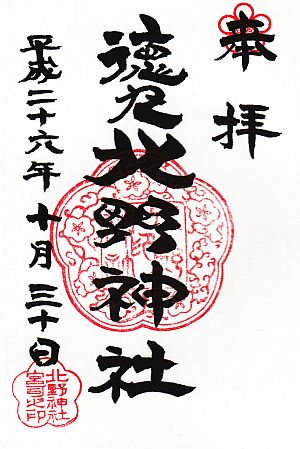 奉拝
德丸北野神社
平成二十六年十月三十日
北野神社
宮司之印